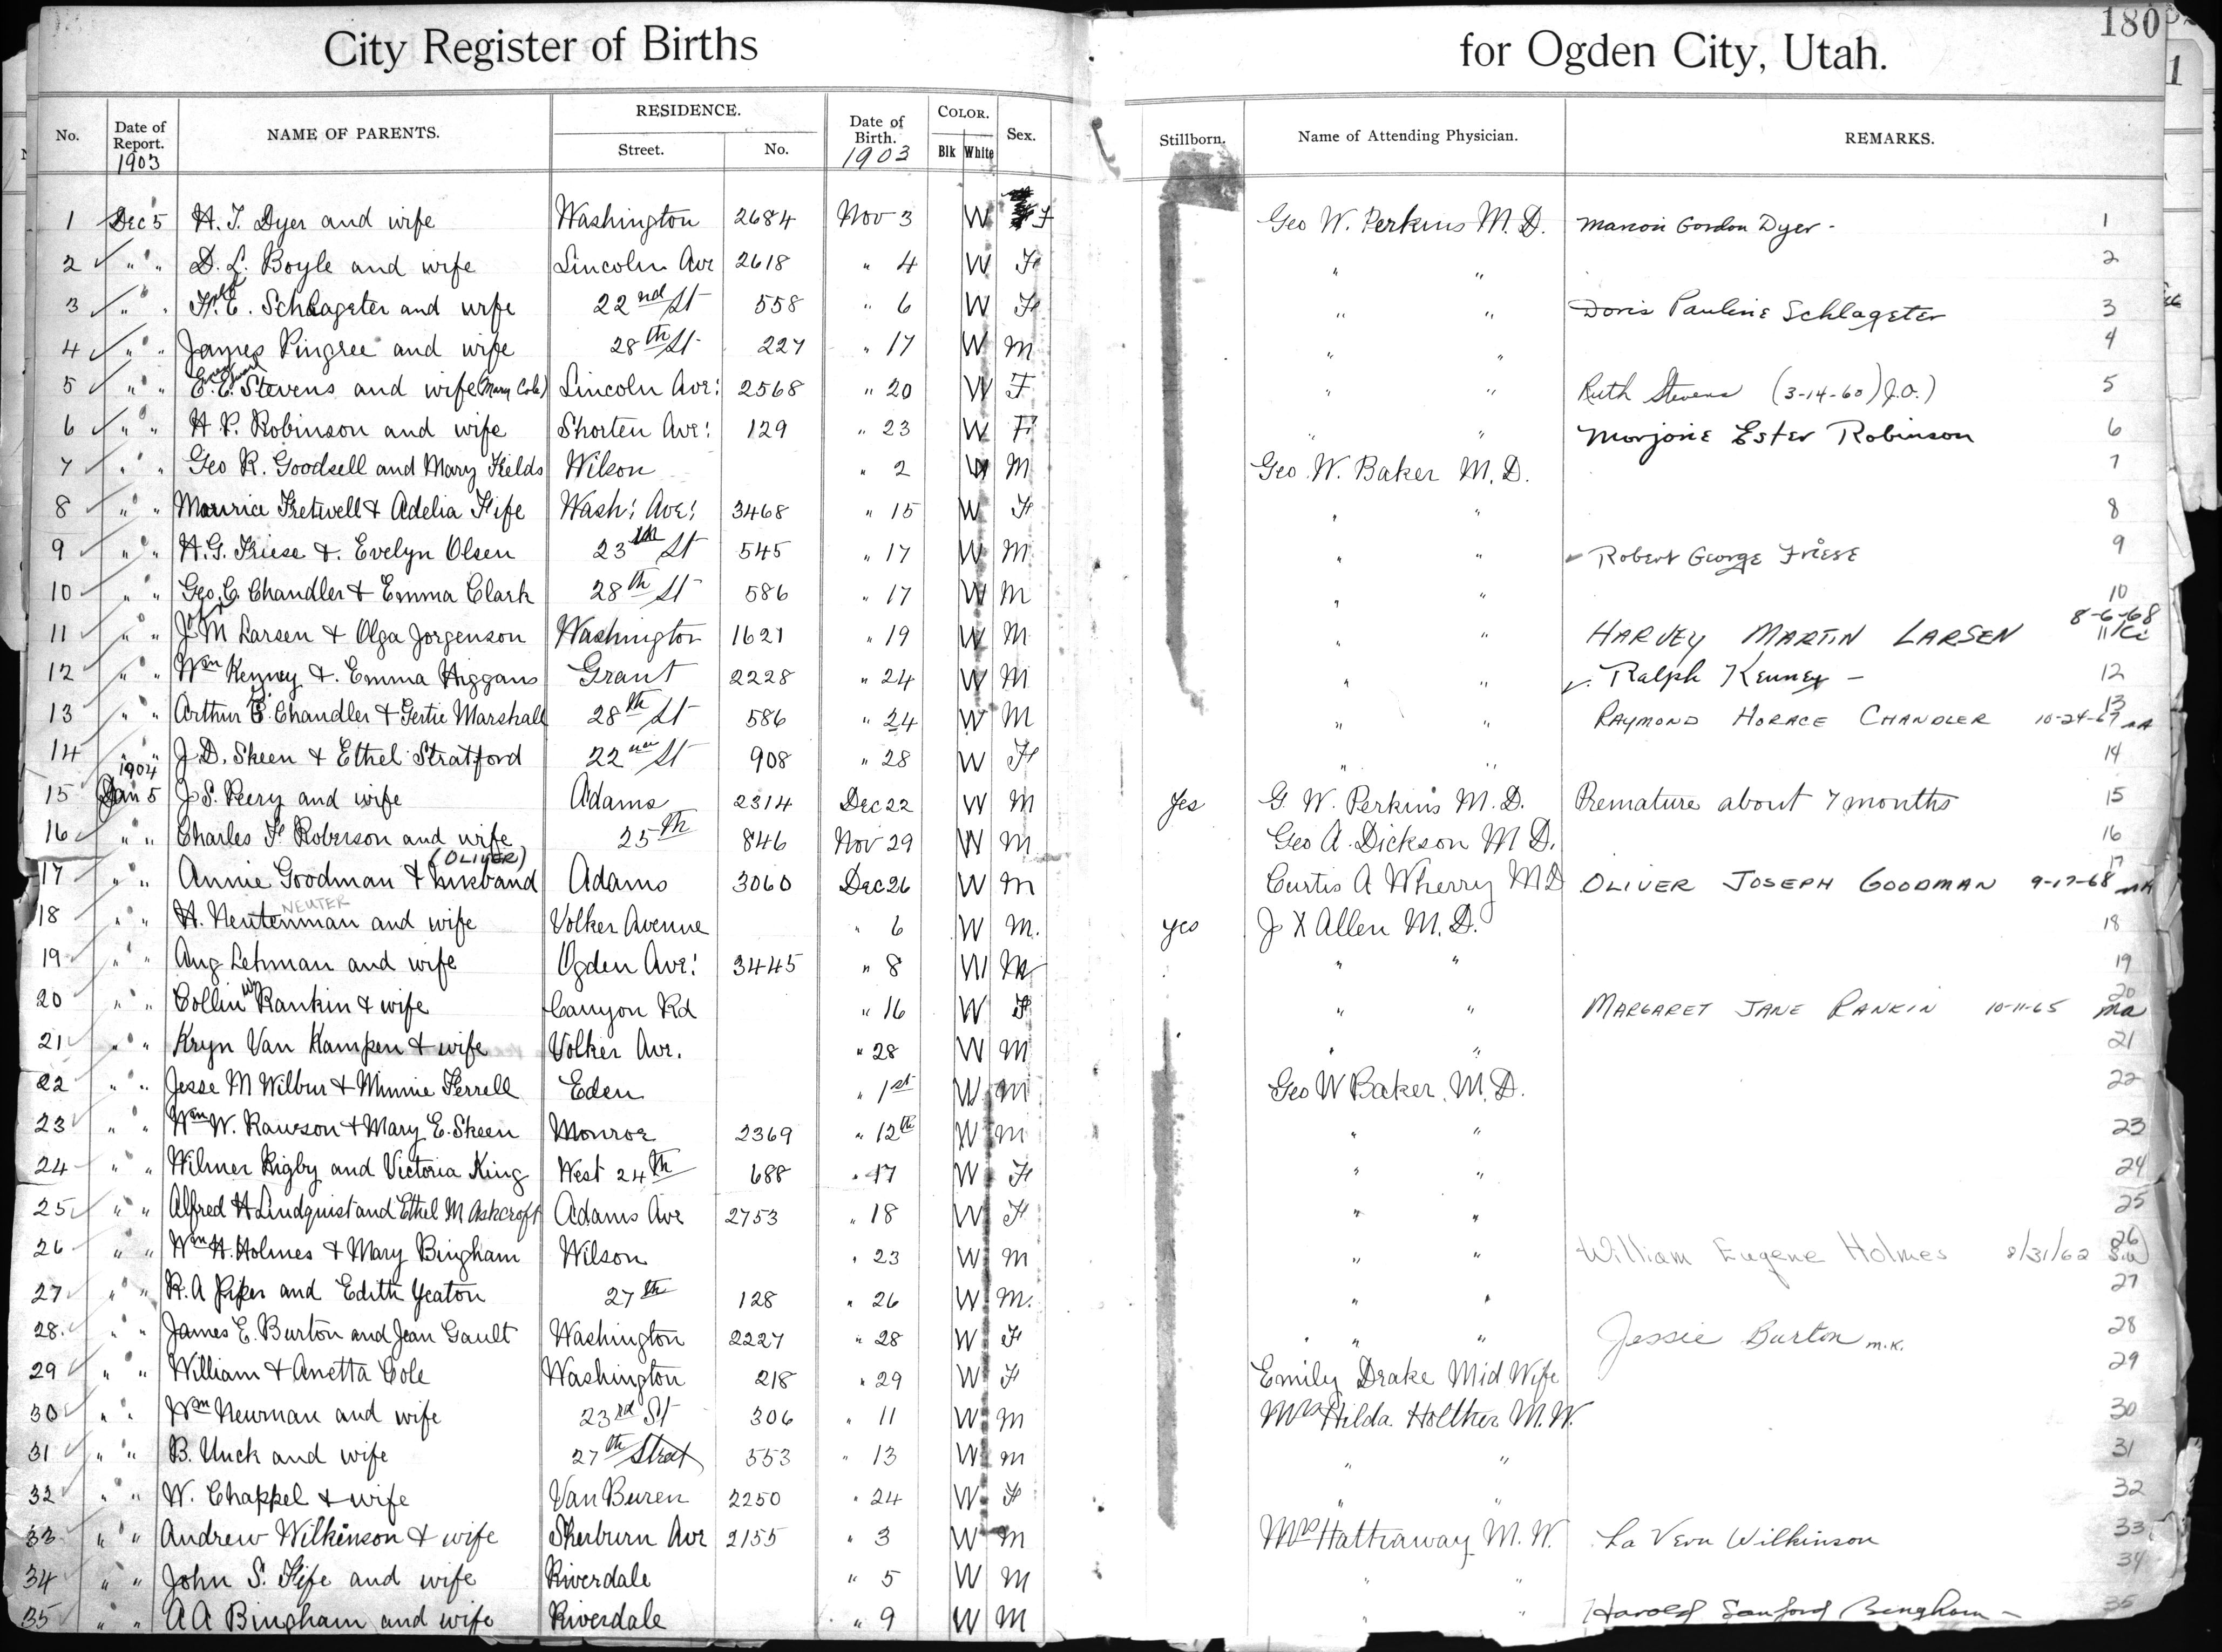 180
City Register of Births for Ogden City, Utah.
No. Date of Report. 1903 NAME OF PARENTS. RESIDENCE. Street. No. Date of Birth. 1903 COLOR. Blk White Sex. Stillborn. Name of Attending Physician. REMARKS.
1 Dec 5 H. T. Dyer and wife Washington 2684 Nov 3 W F Geo W. Perkins M.D. Marion Gordon Dyer - 1
2 " " D. L. Boyle and wife Lincoln Ave 2618 " 4 W F " " 2
3 " " F. E. Schlageter and wife 22nd St 558 " 6 W F " " Doris Pauline Schlageter 3
4 " " James Pingree and wife 28th St 227 " 17 W M " " 4
5 " " E. E. Stevens and wife (Mary Cole) Lincoln Ave: 2568 " 20 W F " " Ruth Stevens (3-14-60) J.O.) 5
6 " " H. P. Robinson and wife Shorten Ave: 129 " 23 W F " " Marjorie Ester Robinson 6
7 " " Geo R. Goodsell and Mary Fields Wilson " 2 W M Geo. W. Baker M.D. 7
8 " " Maurice Fretwell & Adelia Fife Wash: Ave: 3468 " 15 W F " " 8
9 " " H. G. Friese &. Evelyn Olsen 23th St 545 " 17 W M " " Robert George Friese 9
10 " " Geo. C. Chandler & Emma Clark 28th St 586 " 17 W M " " 10
11 " " J M Larsen & Olga Jorgenson Washington 1621 " 19 W M " " HARVEY MARTIN LARSEN 8-6-68 11
12 " " Wm Kenney &. Emma Higgans Grant 2228 " 24 W M " " Ralph Kenney - 12
13 " " Arthur B. Chandler & Gertie Marshall 28th St 586 " 24 W M " " RAYMOND HORACE CHANDLER 10-24-67 13
14 " " J. D. Skeen & Ethel Stratford 22nd St 908 " 28 W F " " 14
1904
15 Jan 5 J. S. Peery and wife Adams 2314 Dec 22 W M Yes G. W. Perkins M.D. Premature about 7 months 15
16 " " Charles F Roberson and wife 25th 846 Nov 29 W M Geo A. Dickson M D. 16
(OLIVER)
17 " " Annie Goodman & husband Adams 3060 Dec 26 W M Curtis A Wherry MD OLIVER JOSEPH GOODMAN 9-17-68 17
NEUTER
18 " " H. Neutenman and wife Volker Avenue " 6 W M. yes J X Allen M.D. 18
19 " " Aug Lehman and wife Ogden Ave: 3445 " 8 W M " " 19
20 " " Collin W Rankin & wife Canyon Rd " 16 W F " " MARGARET JANE RANKIN 10-11-65 ma 20
21 " " Kryn Van Kampen & wife Volker Ave. " 28 W M " " 21
22 " " Jesse M Wilbur & Minnie Ferrell Eden " 1st W M Geo W Baker. M.D. 22
23 " " Wm W. Rawson & Mary E. Skeen Monroe 2369 " 12th W M " " 23
24 " " Wilmer Rigby and Victoria King West 24th 688 " 17 W F " " 24
25 " " Alfred H Lindquist and Ethel M Ashcroft Adams Ave 2753 " 18 W F " " 25
26 " " Wm H. Holmes & Mary Bingham Wilson " 23 W M " " William Eugene Holmes 8/31/62 26
27 " " R. A Piper and Edith Yeaton 27th 128 " 26 W M. " " 27
28. " " James E. Burton and Jean Gault Washington 2227 " 28 W F " " Jessie Burton m.k. 28
29 " " William & Anetta Cole Washington 218 " 29 W F Emily Drake Mid Wife 29
30 " " Wm Newman and wife 23rd St 306 " 11 W M Mrs Hilda Holther M.W. 30
31 " " B. Unck and wife 27th Street 553 " 13 W M " " 31
32 " " W. Chappel & wife Van Buren 2250 " 24 W F " " 32
33 " " Andrew Wilkinson & wife Sherburn Ave 2155 " 3 W M Mrs Hathaway M.W. La Vern Wilkinson 33
34 " " John S. Fife and wife Riverdale " 5 W M " " 34
35 " " A A Bingham and wife Riverdale " 9 W M " " Harold Sanford Bingham - 35